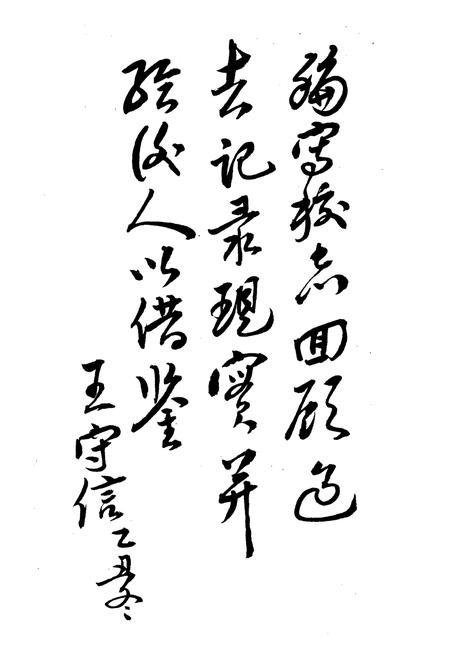 编写校志回顾过
去记录现实并
给后人以借鉴
王守信乙丑冬